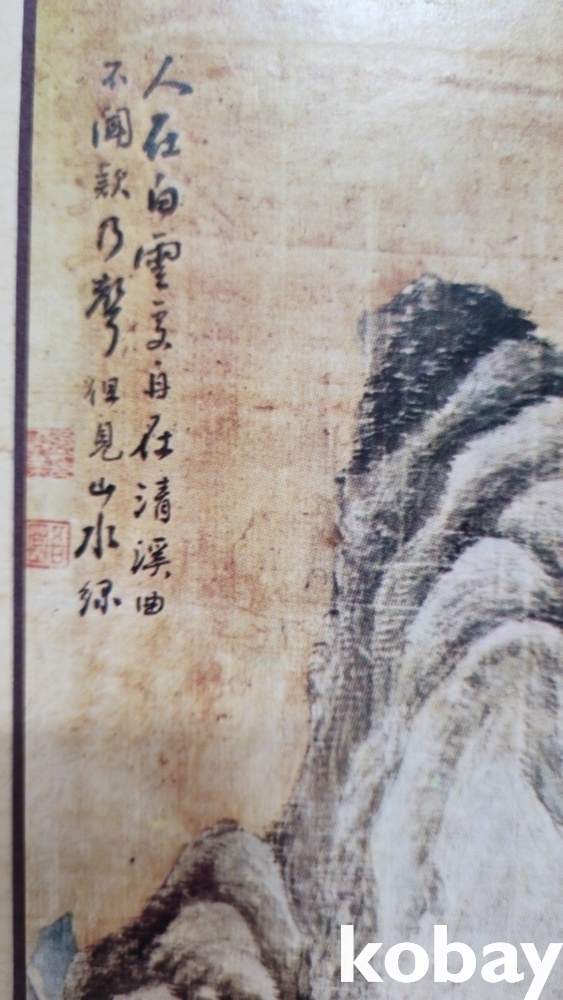 人在白雲處舟在清溪曲
不聞欸乃聲但見山水綠
kobay